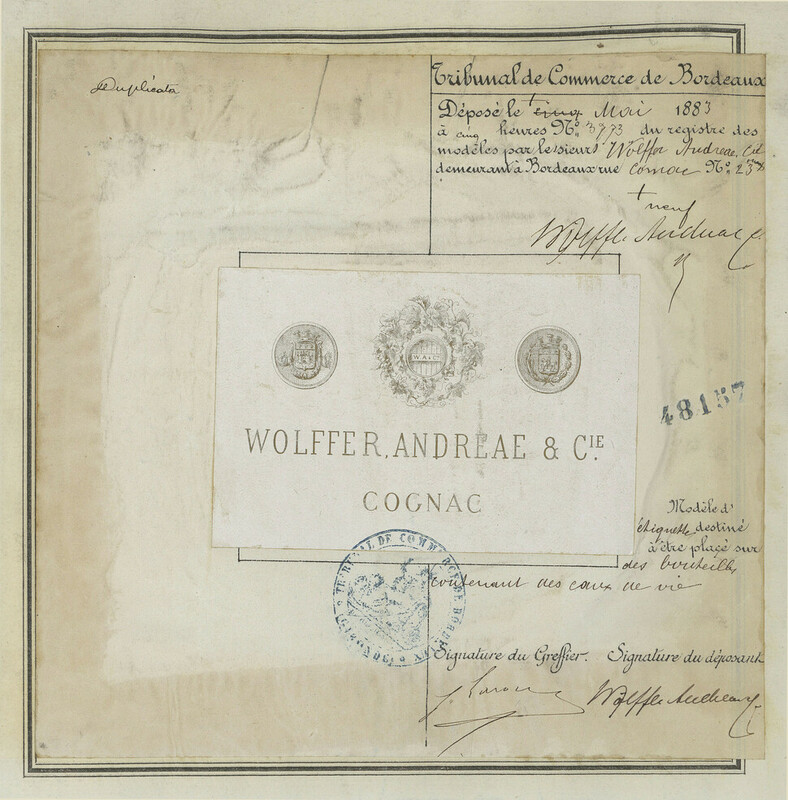 Duplicata
Tribunal de Commerce de Bordeaux
Déposé le cinq Mai 1883
à cinq heures No. 3793 du registre des
modèles par les sieurs Wolffer Andreae, Cie
demeurant à Bordeaux rue No. 23
+ neuf
Wolffer Andreae C.
W.A & Cie
WOLFFER, ANDREAE & CIE.
COGNAC
48157
Modèle d'
étiquette destiné
à être placé sur
des bouteilles
contenant des eaux de vie
TRIBUNAL DE COMMERCE DE BORDEAUX
(GIRONDE)
Signature du Greffier. Signature du déposant
Wolffer Andreae C.